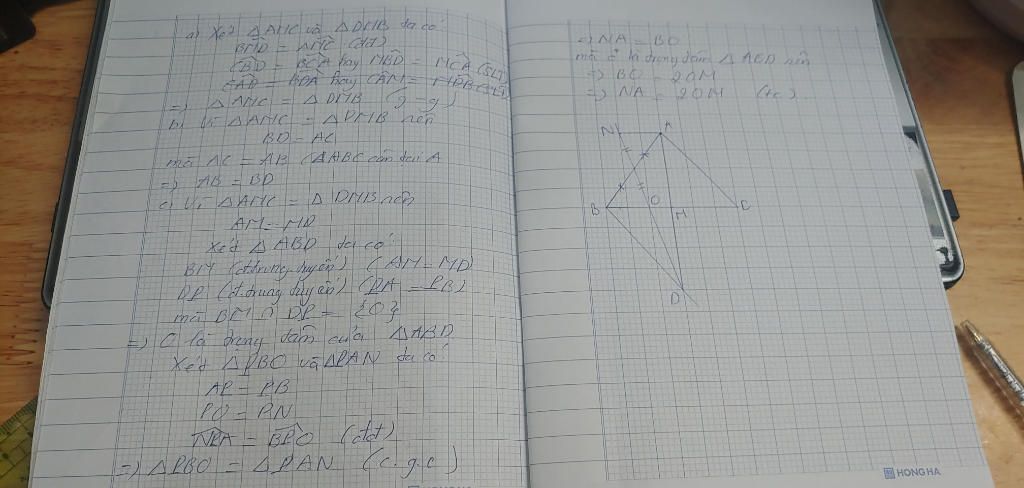 a) Xét △AMC và △DMB ta có
BMD = AMC (đđ)
CBD = BCA hay MBD = MCA (SLT)
CAD = BDA hay CAM = MDB (SLT)
=> △AMC = △DMB (g-g)
b) Vì △AMC = △DMB nên
BD = AC
mà AC = AB (△ABC cân tại A
=> AB = BD
c) Vì △AMC = △DMB nên
AM = MD
Xét △ABD ta có
BM (đ.trung tuyến) (AM = MD)
DP (đ.trung tuyến) (PA = PB)
mà BM ∩ DP = {O}
=> O là trọng tâm của △ABD
Xét △PBO và △PAN ta có
AP = PB
PO = PN
NPA = BPO (đđ)
=> △PBO = △PAN (c.g.c)
=> NA = BO
mà O là trọng tâm △ABD nên
=> BO = 2OM
=> NA = 2OM
N
A
B
O
M
C
D
HONG HA